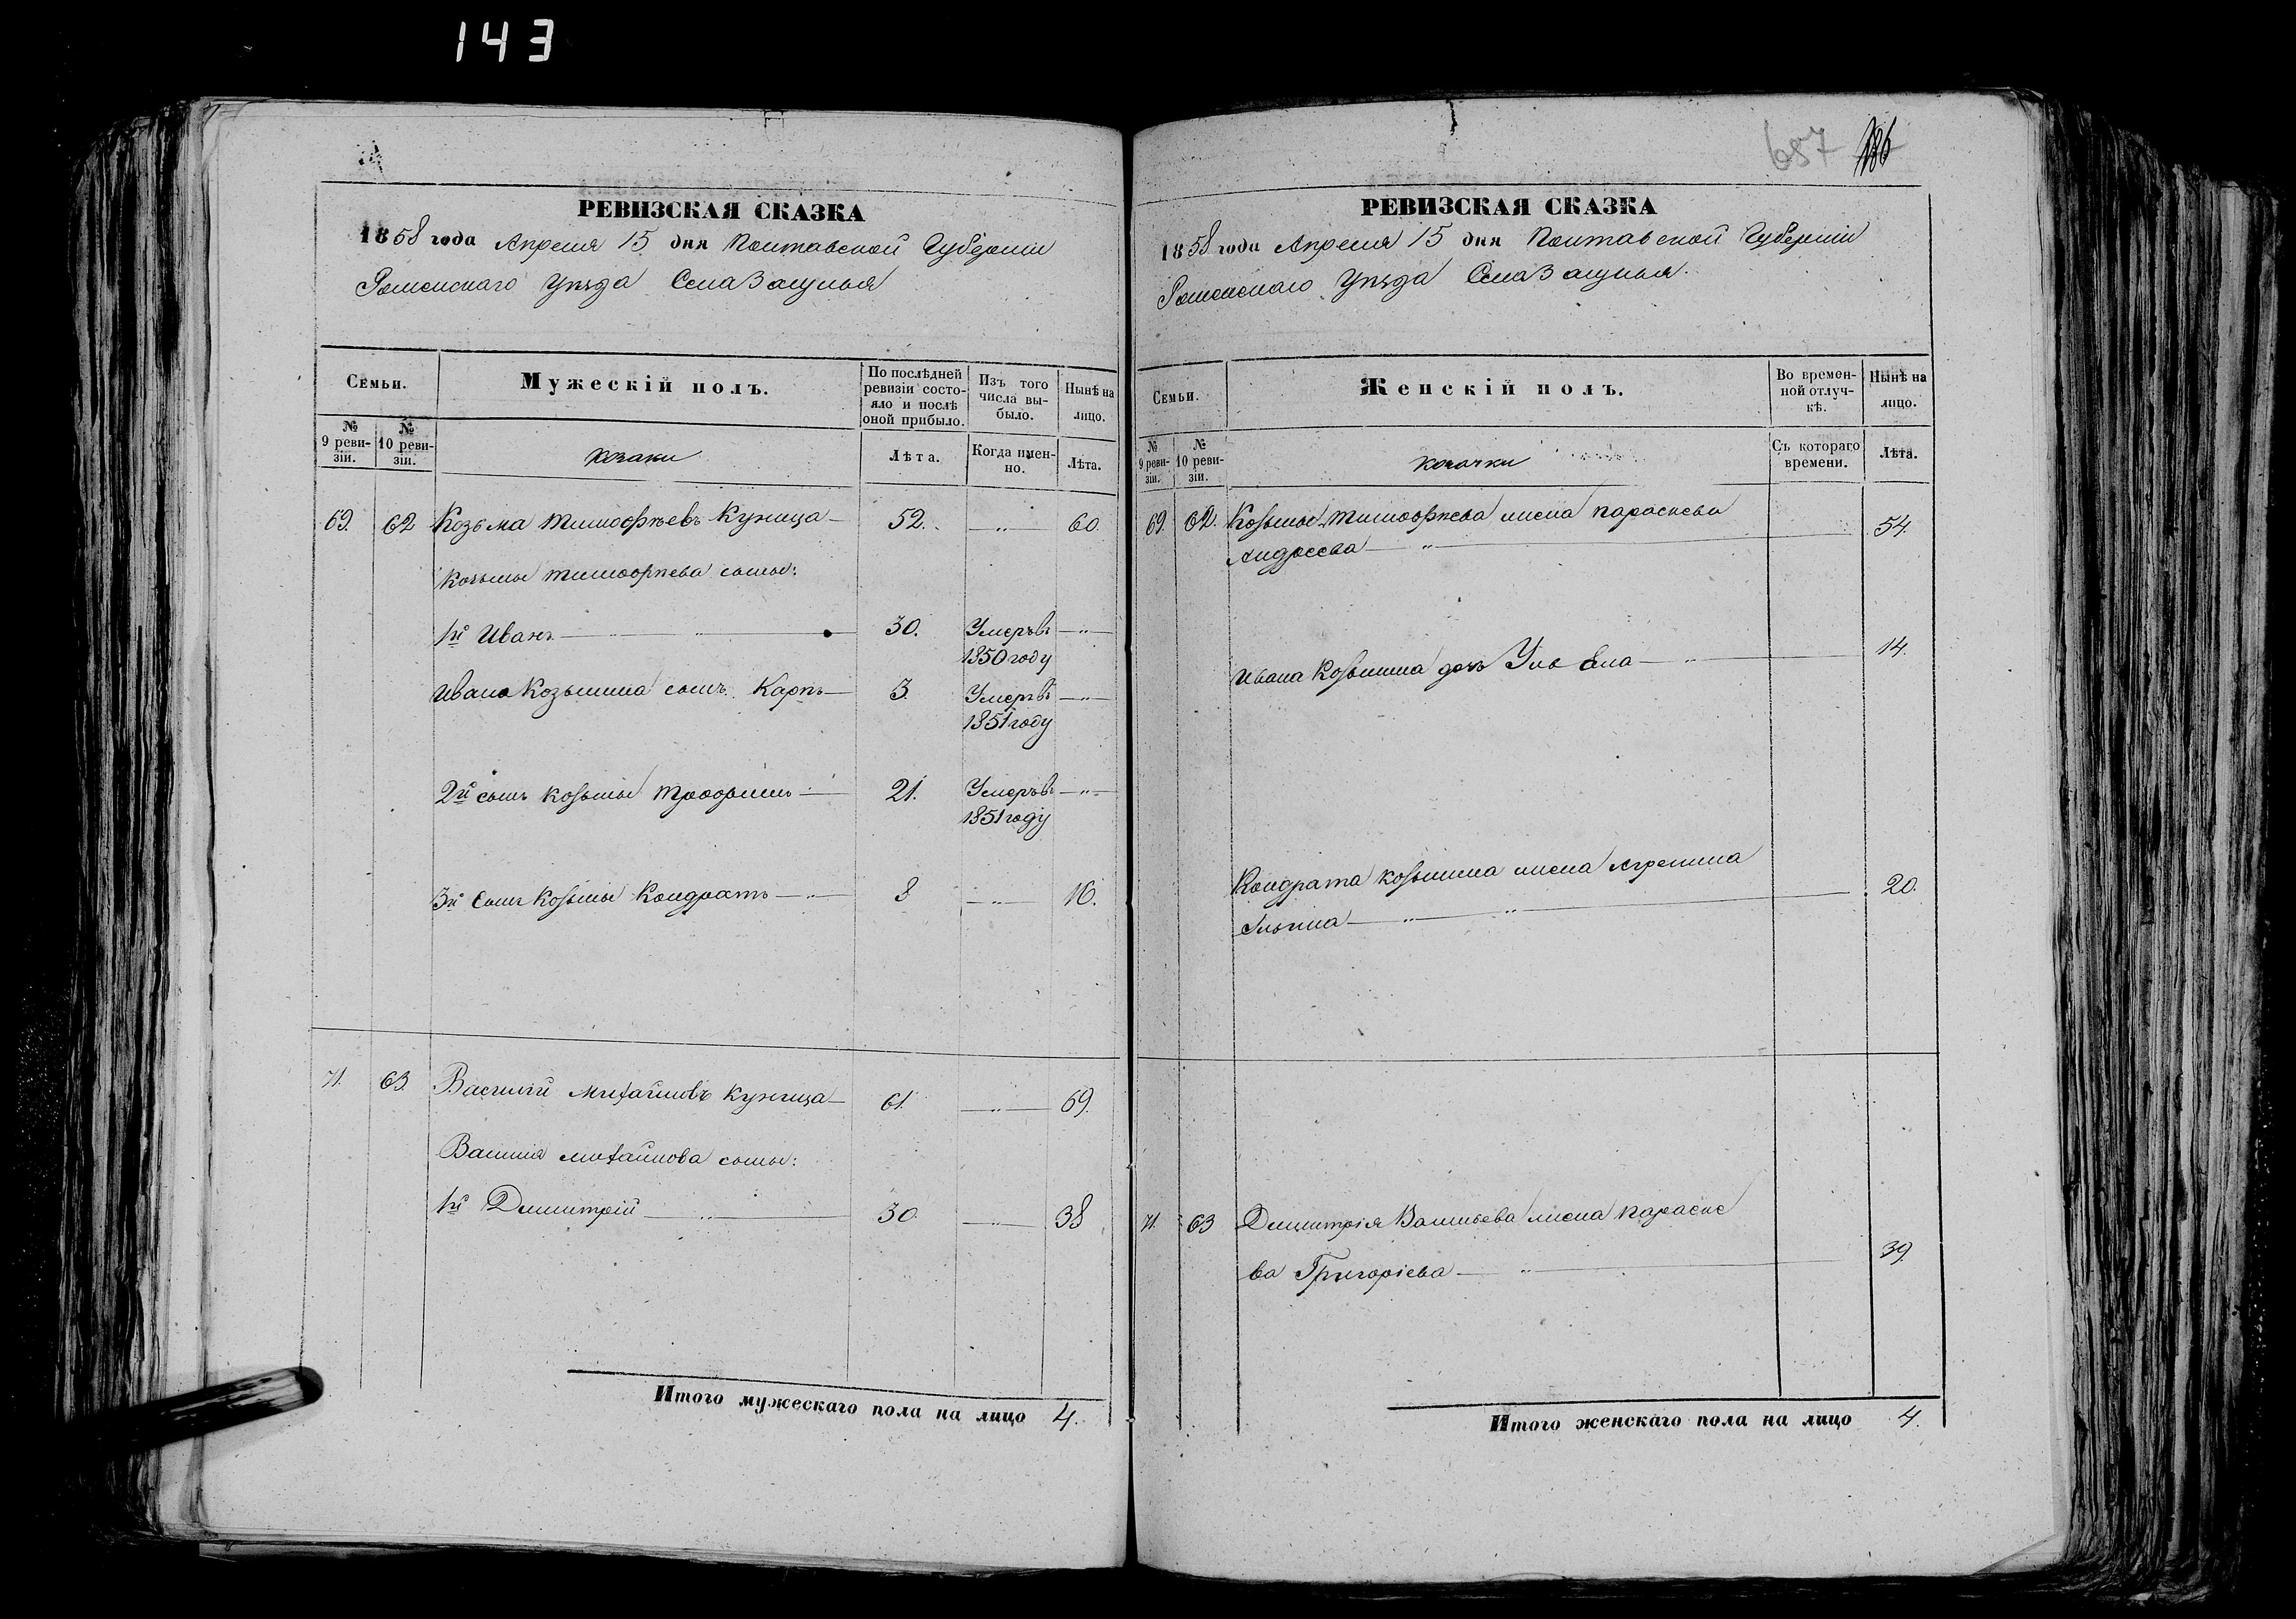 143
РЕВИЗСКАЯ СКАЗКА
1858 года Апреля 15 дня Полтавской Губерніи
Роменскаго Уѣзда Села Засулья
Семьи.
Мужескій полъ.
По послѣдней ревизіи состояло и послѣ оной прибыло.
Изъ того числа выбыло.
Нынѣ на лицо.
№ 9 ревизіи.
№ 10 ревизіи.
козаки
Лѣта.
Когда именно.
Лѣта.
69. 62 Козьма Тимофѣевъ Куница — 52. — „ — 60.
Козьмы Тимофѣева сыны:
1й Иванъ — „ — 30. Умеръ въ — „ —
1850 году
Ивана Козьмина сынъ Карпъ — 3. Умеръ въ — „ —
1851 году
2й сынъ Козьмы Трофимъ — 21. Умеръ въ — „ —
1851 году
3й Сынъ Козьмы Кондратъ — „ 8 — „ — 16.
71. 63. Василий Михайловъ Куница — 61. — „ — 69.
Василія Михайлова сыны:
1й Димитрій — „ — 30. — „ — 38
Итого мужескаго пола на лицо 4.
657 186
РЕВИЗСКАЯ СКАЗКА
1858 года Апреля 15 дня Полтавской Губерніи
Роменскаго Уѣзда Села Засулья.
Семьи.
Женскій полъ.
Во временной отлучкѣ.
Нынѣ на лицо.
№ 9 ревизіи.
№ 10 ревизіи.
козачки
Съ котораго времени.
Лѣта.
69. 62. Козьмы Тимофѣева жена Параскева
Андреева — „ — 54.
Ивана Козьмина дочь Ульяна — „ — 14.
Кондрата Козьмина жена Агрепина
Ильина — „ — „ — 20.
71. 63 Димитрія Васильева жена Параске
ва Григоріева — „ — 39.
Итого женскаго пола на лицо 4.